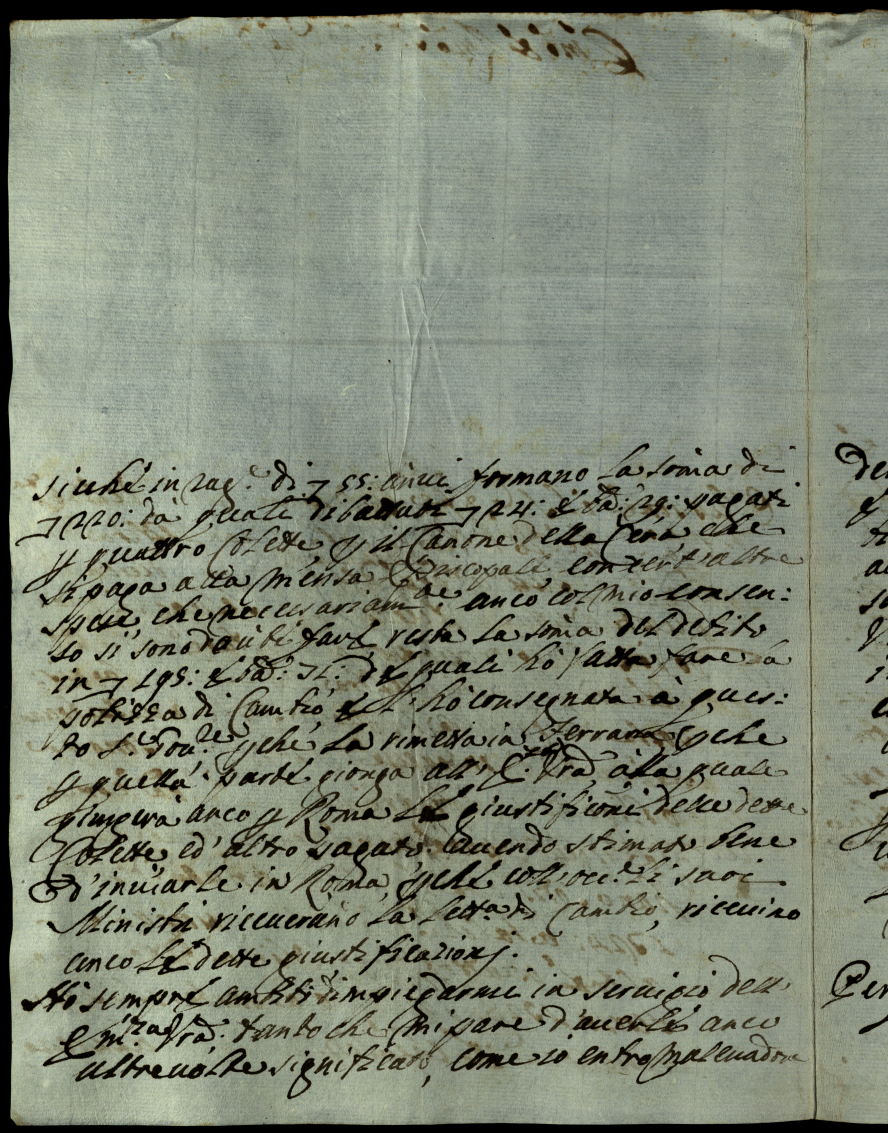 sicché in rag.e di 7 55: anui formano la soma di
7 220: da quali dibattuti 7 24: & bā: 29: pagati
p quattro Colette, p il Canone della Cena che
si paga alla Mensa Episcopale con cert'altre
spese che necessariam.te anco col mio consen:
so si sono dovuti fare resta la soma del debito
in 7 195: & bā: 71: del quali hò fatta fare la
polizza di Cambio, & l'hò consegnata à ques:
to S.r Gov.re pche la rimetta in Ferrara pche
p quella parte gionga all' E. Vrā, alla quale
giungerà anco p Roma le giustificōni delle dette
Colette ed' altro pagato. Avendo stimato bene
d'inviarle in Roma, pche coll'occ.e li suoi
Ministri riceverano la lett.a di Cambio, ricevino
anco le dette giustificazionj.
Hò sempre ambiti d'impiegarmi in servigio dell'
Em.za Vrā. tanto che mi pare d'averle anco
altrevolte significato, come io entro Mallevadore
De
Per